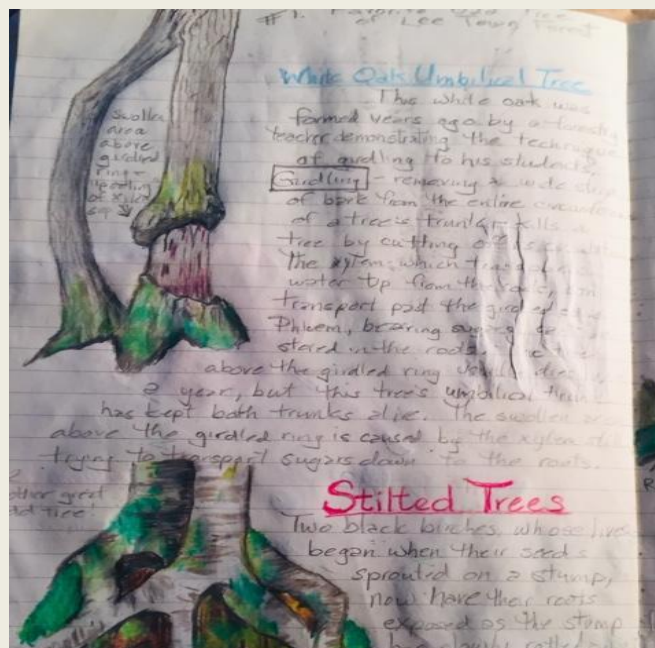 #1. Favorite Odd Tree
of Lee Town Forest
White Oak Umbilical Tree
This white oak was
formed years ago by a forestry
teacher demonstrating the technique
of girdling to his students.
Girdling - removing a wide strip
of bark from the entire circumference
of a tree's trunk - kills a
tree by cutting
the xylem, which
water up from the
transport past the girdled
Phloem, bearing sugars
stored in the roots.
above the girdled ring usually dies
a year, but this tree's umbilical trunk
has kept both trunks alive. The swollen area
above the girdled ring is caused by the xylem still
trying to transport sugars down to the roots.
Swollen
area
above
girdled
ring -
of xylem
sap
other great
odd tree!
Stilted Trees
Two black birches, whose lives
began when their seeds
sprouted on a stump,
now have their roots
exposed as the stump
has slowly rotted